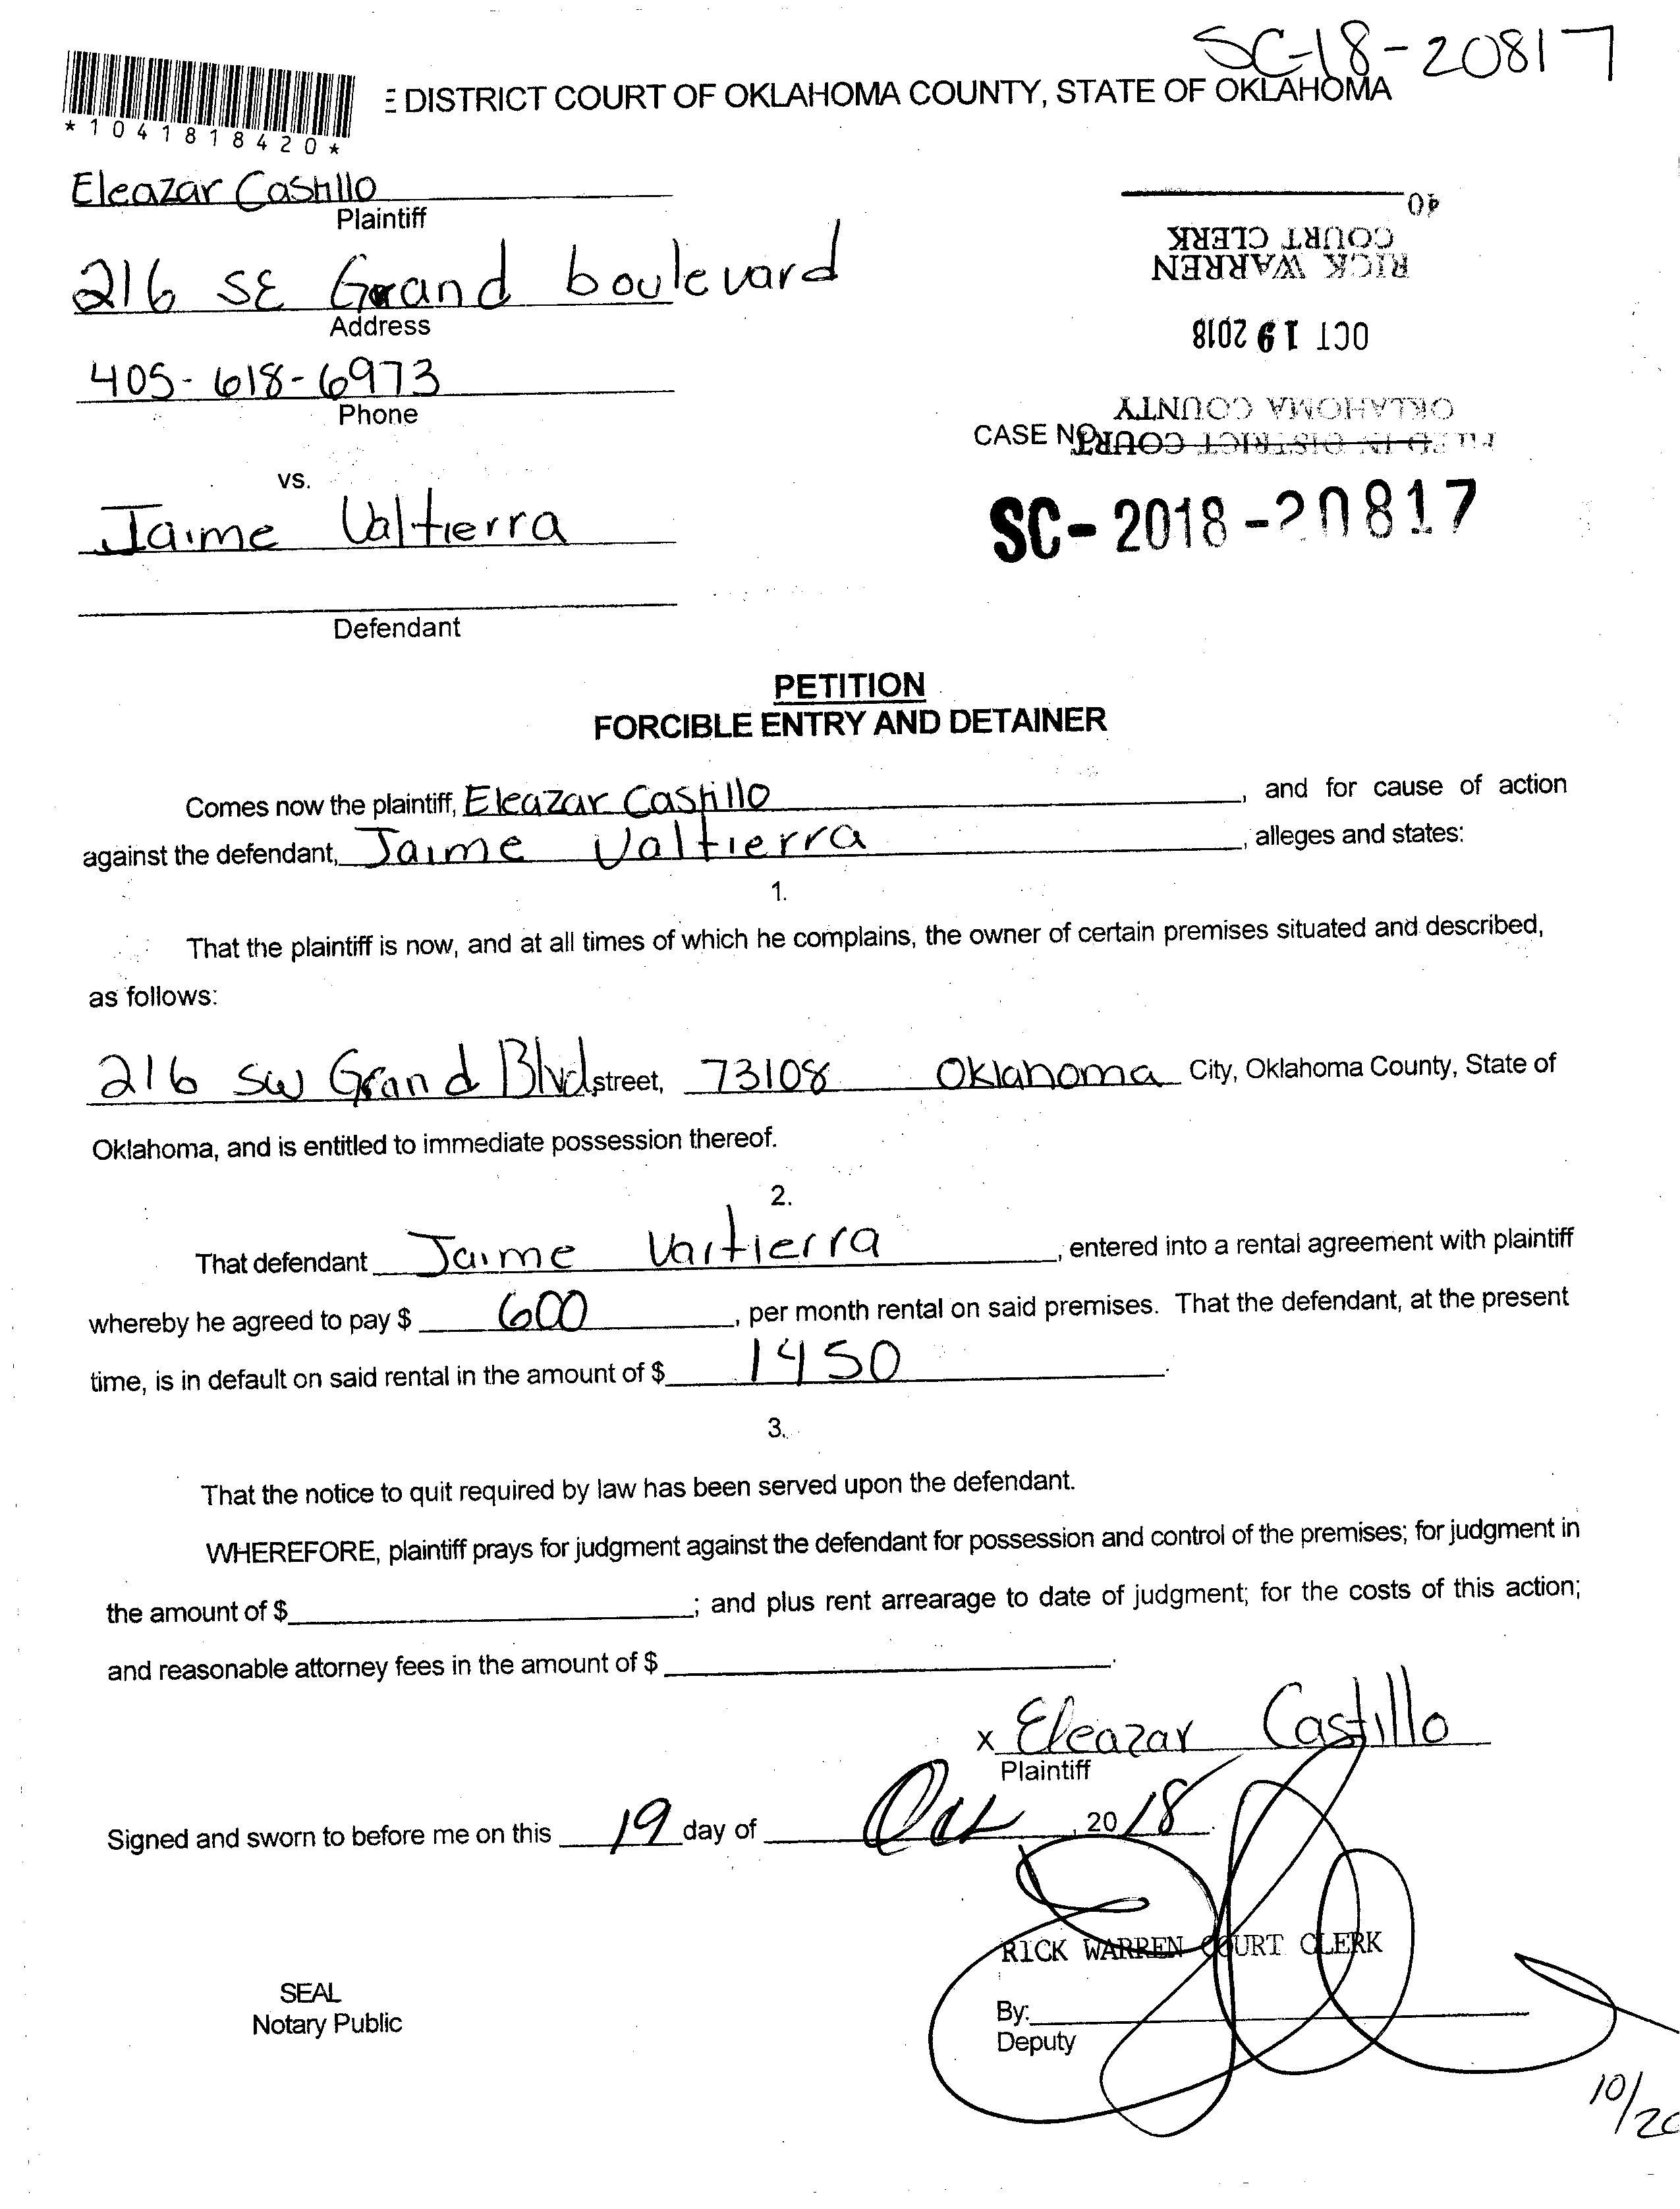 SC-18-20817
E DISTRICT COURT OF OKLAHOMA COUNTY, STATE OF OKLAHOMA
*1041818420*
Eleazar Castillo
Plaintiff
216 SE Grand boulevard
Address
405-618-6973
Phone
vs.
Jaime Valtierra
Defendant
FILED IN DISTRICT COURT
OKLAHOMA COUNTY
OCT 19 2018
RICK WARREN
COURT CLERK
40
CASE NO.
SC-2018-20817
PETITION
FORCIBLE ENTRY AND DETAINER
Comes now the plaintiff, Eleazar Castillo, and for cause of action
against the defendant, Jaime Valtierra, alleges and states:
1.
That the plaintiff is now, and at all times of which he complains, the owner of certain premises situated and described,
as follows:
216 SW Grand Blvd street, 73108 Oklahoma City, Oklahoma County, State of
Oklahoma, and is entitled to immediate possession thereof.
2.
That defendant Jaime Vartierra, entered into a rental agreement with plaintiff
whereby he agreed to pay $ 600, per month rental on said premises. That the defendant, at the present
time, is in default on said rental in the amount of $ 1450.
3.
That the notice to quit required by law has been served upon the defendant.
WHEREFORE, plaintiff prays for judgment against the defendant for possession and control of the premises; for judgment in
the amount of $ ; and plus rent arrearage to date of judgment; for the costs of this action;
and reasonable attorney fees in the amount of $ .
x Eleazar Castillo
Plaintiff
Signed and sworn to before me on this 19 day of Oct, 2018.
RICK WARREN COURT CLERK
SEAL
Notary Public
By:
Deputy
10/20